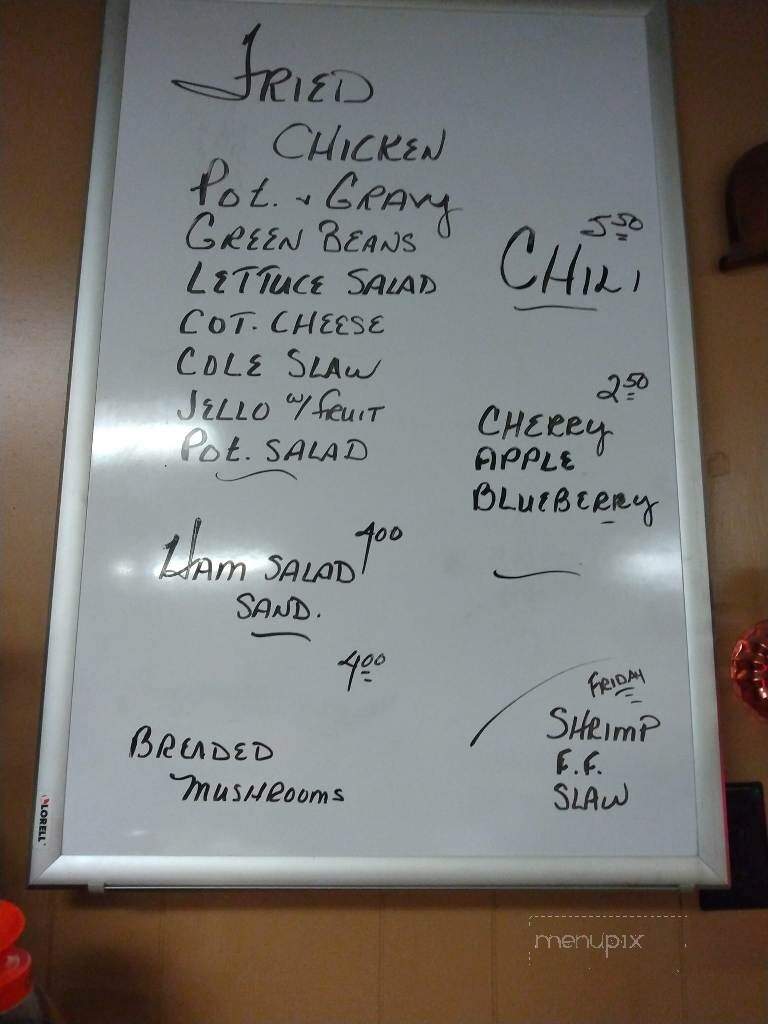 FRIED
CHICKEN
Pot. + GRAVY
GREEN BEANS
LETTUCE SALAD
COT. CHEESE
COLE SLAW
JELLO w/ FRUIT
Pot. SALAD
5 50
CHILI
2 50
CHERRY
APPLE
BLUEBERRY
HAM SALAD 4 00
SAND.
4 00
BREADED
MUSHROOMS
FRIDAY
SHRIMP
F.F.
SLAW
LORELL
menupix